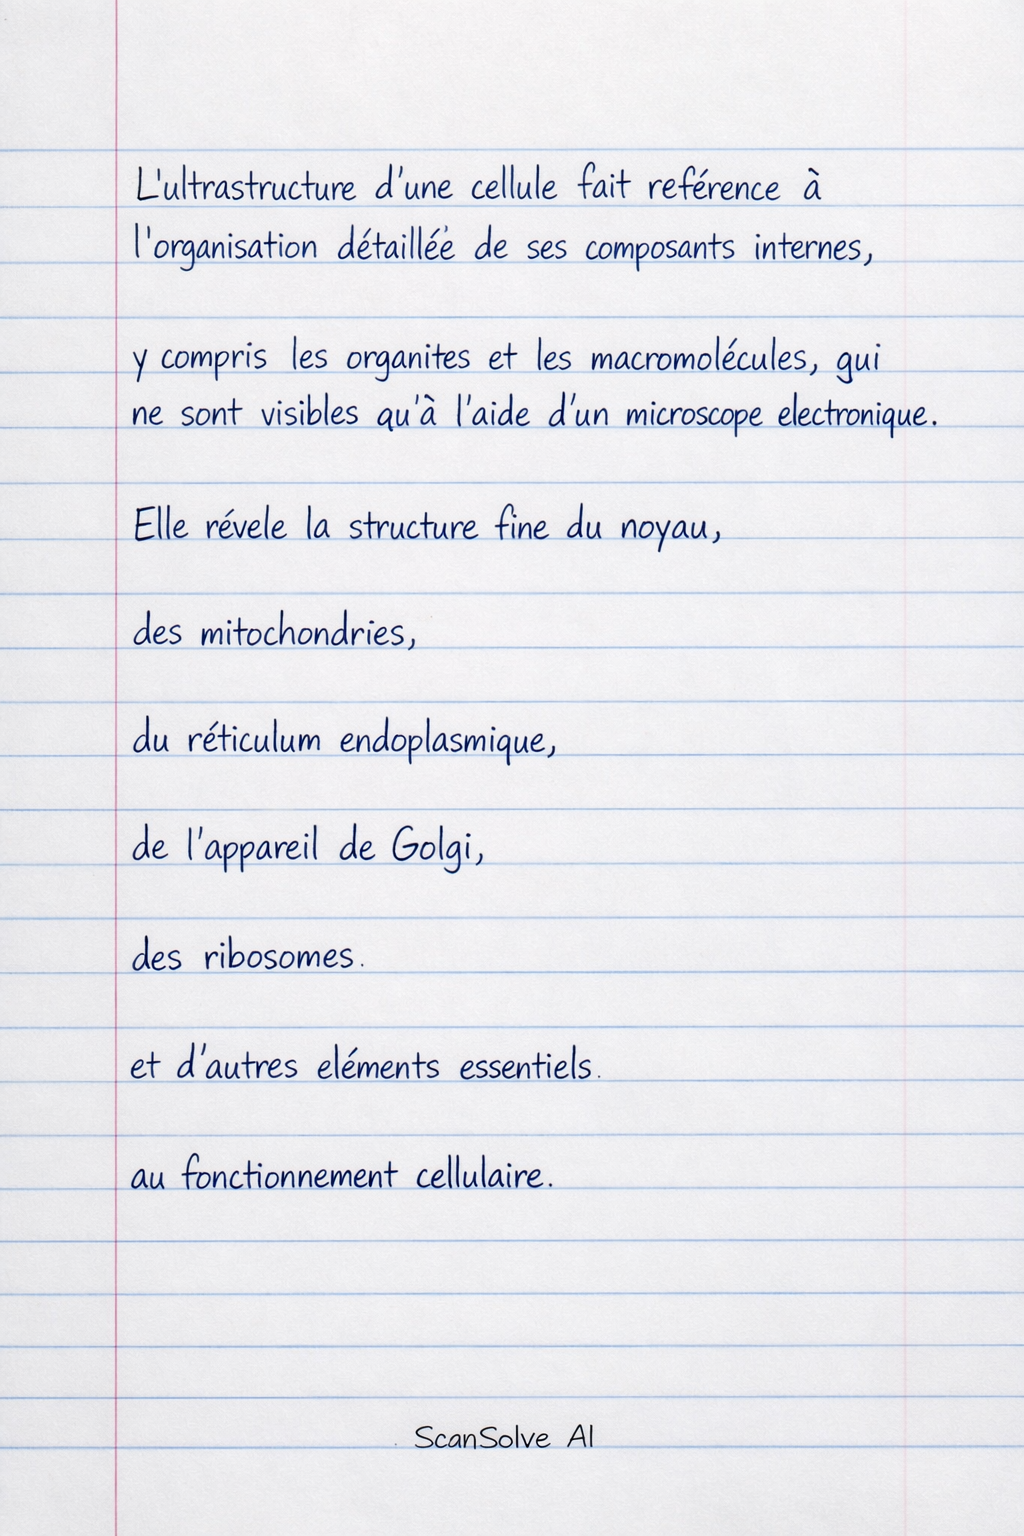 L'ultrastructure d'une cellule fait reférence à
l'organisation détaillée de ses composants internes,
y compris les organites et les macromolécules, gui
ne sont visibles qu'à l'aide d'un microscope electronique.
Elle révele la structure fine du noyau,
des mitochondries,
du réticulum endoplasmique,
de l'appareil de Golgi,
des ribosomes.
et d'autres eléments essentiels.
au fonctionnement cellulaire.
ScanSolve AI